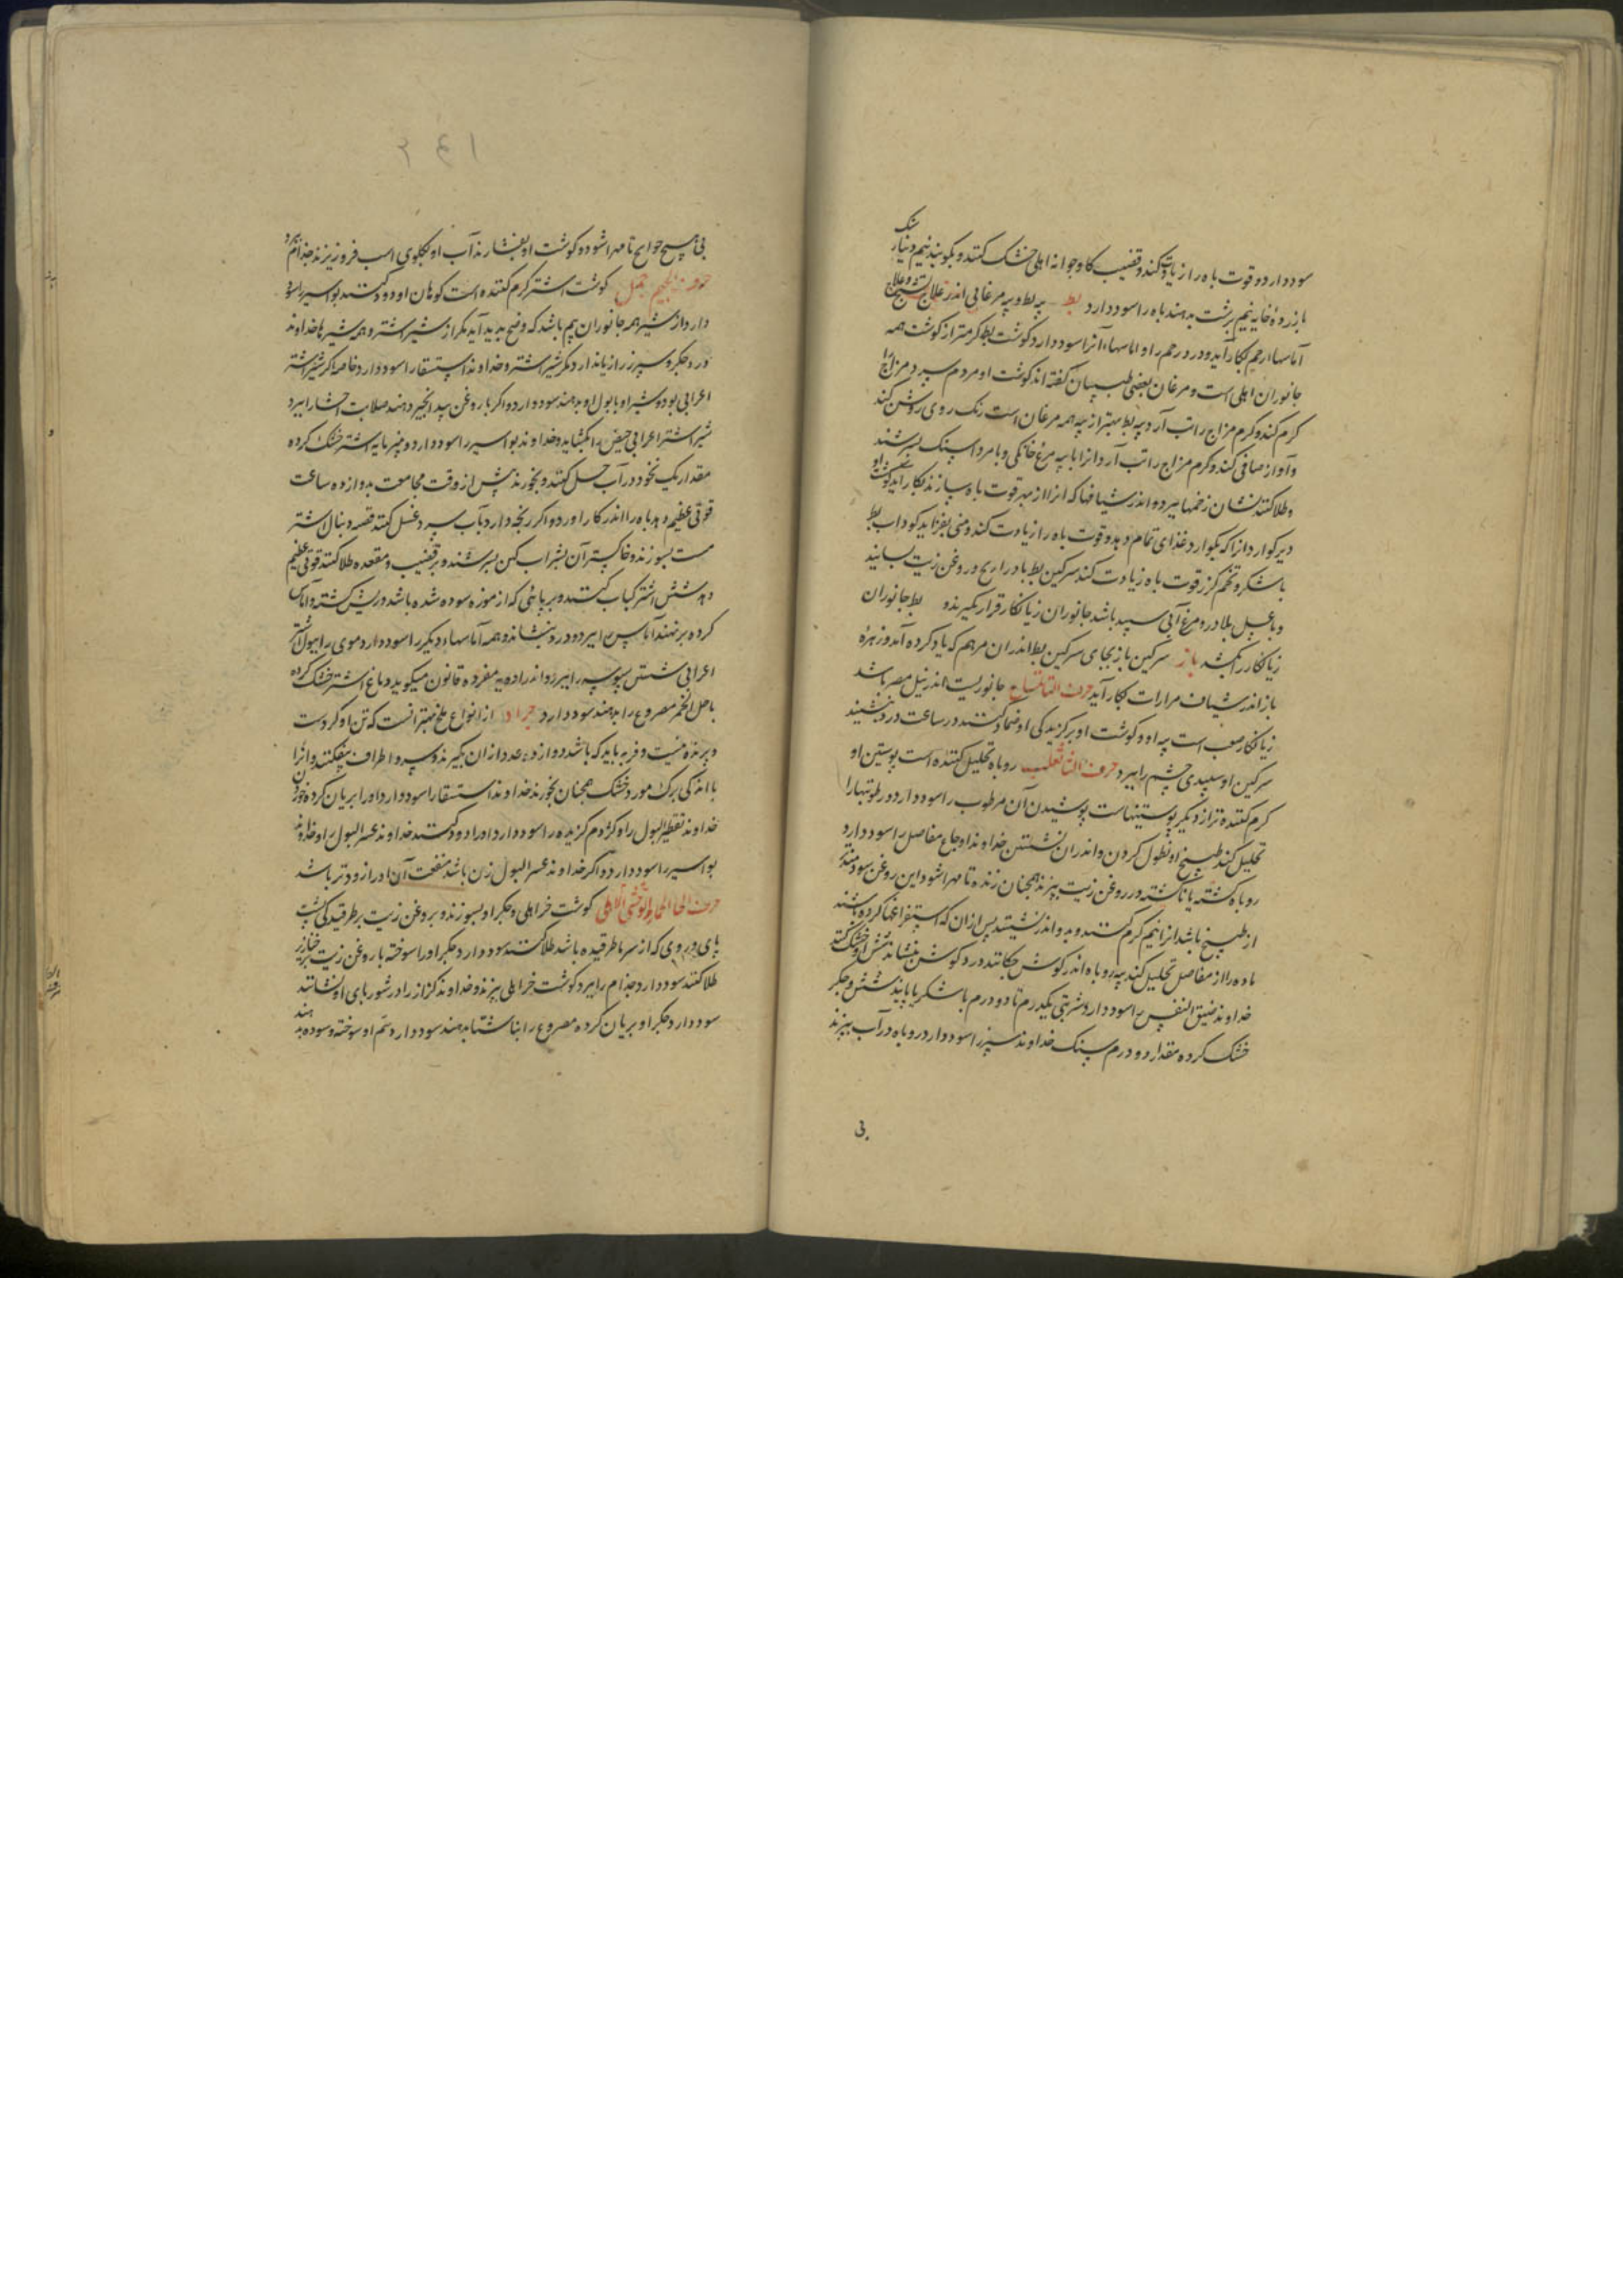 سنک
سود دارد و قوت باه را زیادت کند و قضیب کاو جوانه اهلی خشک کنند و بکوبند نیم دینار
با زرده خایه نیم برشت بدهند باه را سود دارد بط پیه بط و پیه مرغابی اندر علاج تشنج و علاج
آماسهاء رحم بکار آید و درد رحم را و اماسهاء آنرا سود دارد کوشت بط کرمتر از کوشت همه
جانوران اهلی است و مرغان بعضی طبیبان کفته اند کوشت او مردم سرد مزاج را
کرم کند و کرم مزاج را تب آرد پیه بط بهتر از پیه همه مرغان است رنک روی روشن کند
و آواز صافی کند و کرم مزاج را تب آرد و انرا با پیه مرغ خانکی و با مرداسنک بسرشند
و طلا کنند نشان زخمها ببرد و اندر شیافها که انرا از بهر قوت باه سازند بکار آید کوشت او
دیر کوارد و انرا که بکوارد غذای تمام دهد و قوت باه را زیادت کند و منی بفزاید کوداب بط
با شکر و تخم کزر قوت باه زیادت کند سرکین بط با دراریح و روغن زیت بسایند
و با عسل بلادر و مرغ آبی سپید باشد جانوران زیانکار قرار نکیرند و بط جانوران
زیانکار را بکشد باز سرکین باز بجای سرکین بط اندران مرهم که یاد کرده آمد و زهره
باز اندر شیاف مرارات بکار آید حرف التا تمساح جانوریست اندر نیل مصر باشد
زیانکار صعب است پیه او و کوشت او بر کزیدکی او ضماد کنند در ساعت درد بنشیند
سرکین او سپیدی چشم را ببرد حرف الثا ثعلب روباه تحلیل کننده است پوستین او
کرم کننده تر از دیکر پوستینهاست پوشیدن آن مرطوب را سود دارد و رطوبتها را
تحلیل کند طبیخ او نطول کردن و اندران نشستن خداوند اوجاع مفاصل را سود دارد
روباه کشته یا ناکشته در روغن زیت بپزند همچنان زنده تا مهرا شود این روغن سودمندتر
از طبیخ باشد انرا نیم کرم کنند و بدو اندر نشینند پس ازان که استفراغها کرده باشند
ماده را از مفاصل تحلیل کند پیه روباه اندر کوش چکانند درد کوش بنشاند شش او خشک کنند
خداوند ضیق النفس را سود دارد شربتی یکدرم تا دو درم با شکر یا با پانید شش و جکر
خشک کرده مقدار دو درم سنک خداوند سپرز را سود دارد روباه در آب بپزند
بی
۲۴۱
بی هیچ حوایج تا مهرا شود و کوشت او بفشارند آب او بکلوی اسب فرو ریزند جذام ببرد
حرف الجیم جمل کوشت اشتر کرم کننده است کوهان او دود کنند بواسیر را سود
دارد از شیر همه جانوران بیم باشد که وضح پدید آید مکر از شیر اشتر و همه شیرها خداوند
درد جکر و سپرز را زیان دارد مکر شیر اشتر و خداوند استسقا را سود دارد خاصه اکر شیر اشتر
اعرابی بود و شیر او با بول او بدهند سود دارد و اکر با روغن بید انجیر دهند صلابت احشا را ببرد
شیر اشتر اعرابی حیض را بکشاید و خداوند بواسیر را سود دارد و پنیر مایه اشتر خشک کرده
مقدار یک نخود در آب حل کنند و بخورند پیش از وقت مجامعت بدوازده ساعت
قوتی عظیم دهد باه را اندر کار اورد و اکر رنجه دارد بآب سرد غسل کنند قصه دنبال اشتر
مست بسوزند و خاکستر آن بشراب کهن بسرشند و بر قضیب و مقعده طلا کنند قوتی عظیم
دهد شش اشتر کباب کنند و بر پائی که از موزه سوده شده باشد و ریش کشته و آماس
کرده بر نهند آماس را ببرد و درد بنشاند و همه آماسهاء دیکر را سود دارد موی را ببول اشتر
اعرابی شستن سبوسه را ببرد و اندر ادویه مفرده قانون میکوید دماغ اشتر خشک کرده
با خل الخمر مصروع را بدهند سود دارد جراد از انواع ملخ بهتر انست که تن او کرد است
و پرنده نیست و فربه باید که باشد دوازده عدد ازان بکیرند و سر و اطراف بیفکنند و انرا
با اندکی برک مورد خشک همچنان بخورند خداوند استسقا را سود دارد و اورا بریان کرده خوردن
خداوند تقطیر البول را و کژدم کزیده را سود دارد و اورا دود کنند خداوند عسر البول را و خداوند
بواسیر را سود دارد و اکر خداوند عسر البول زن باشد منفعت آن اورا زودتر باشد
حرف الحا الحمار الوحشی الاهلی کوشت خر اهلی و جکر او بسوزند و بروغن زیت بر طرقیدکی پشت
پای و روی که از سرما طرقیده باشد طلا کنند سود دارد و جکر اورا سوخته با روغن زیت بر خنازیر
طلا کنند سود دارد و جذام را ببرد کوشت خر اهلی بپزند و خداوند کزاز را در شوربای او نشانند
سود دارد و جکر او بریان کرده مصروع را بناشتا بدهند سود دارد و سم او سوخته و سوده بدهند